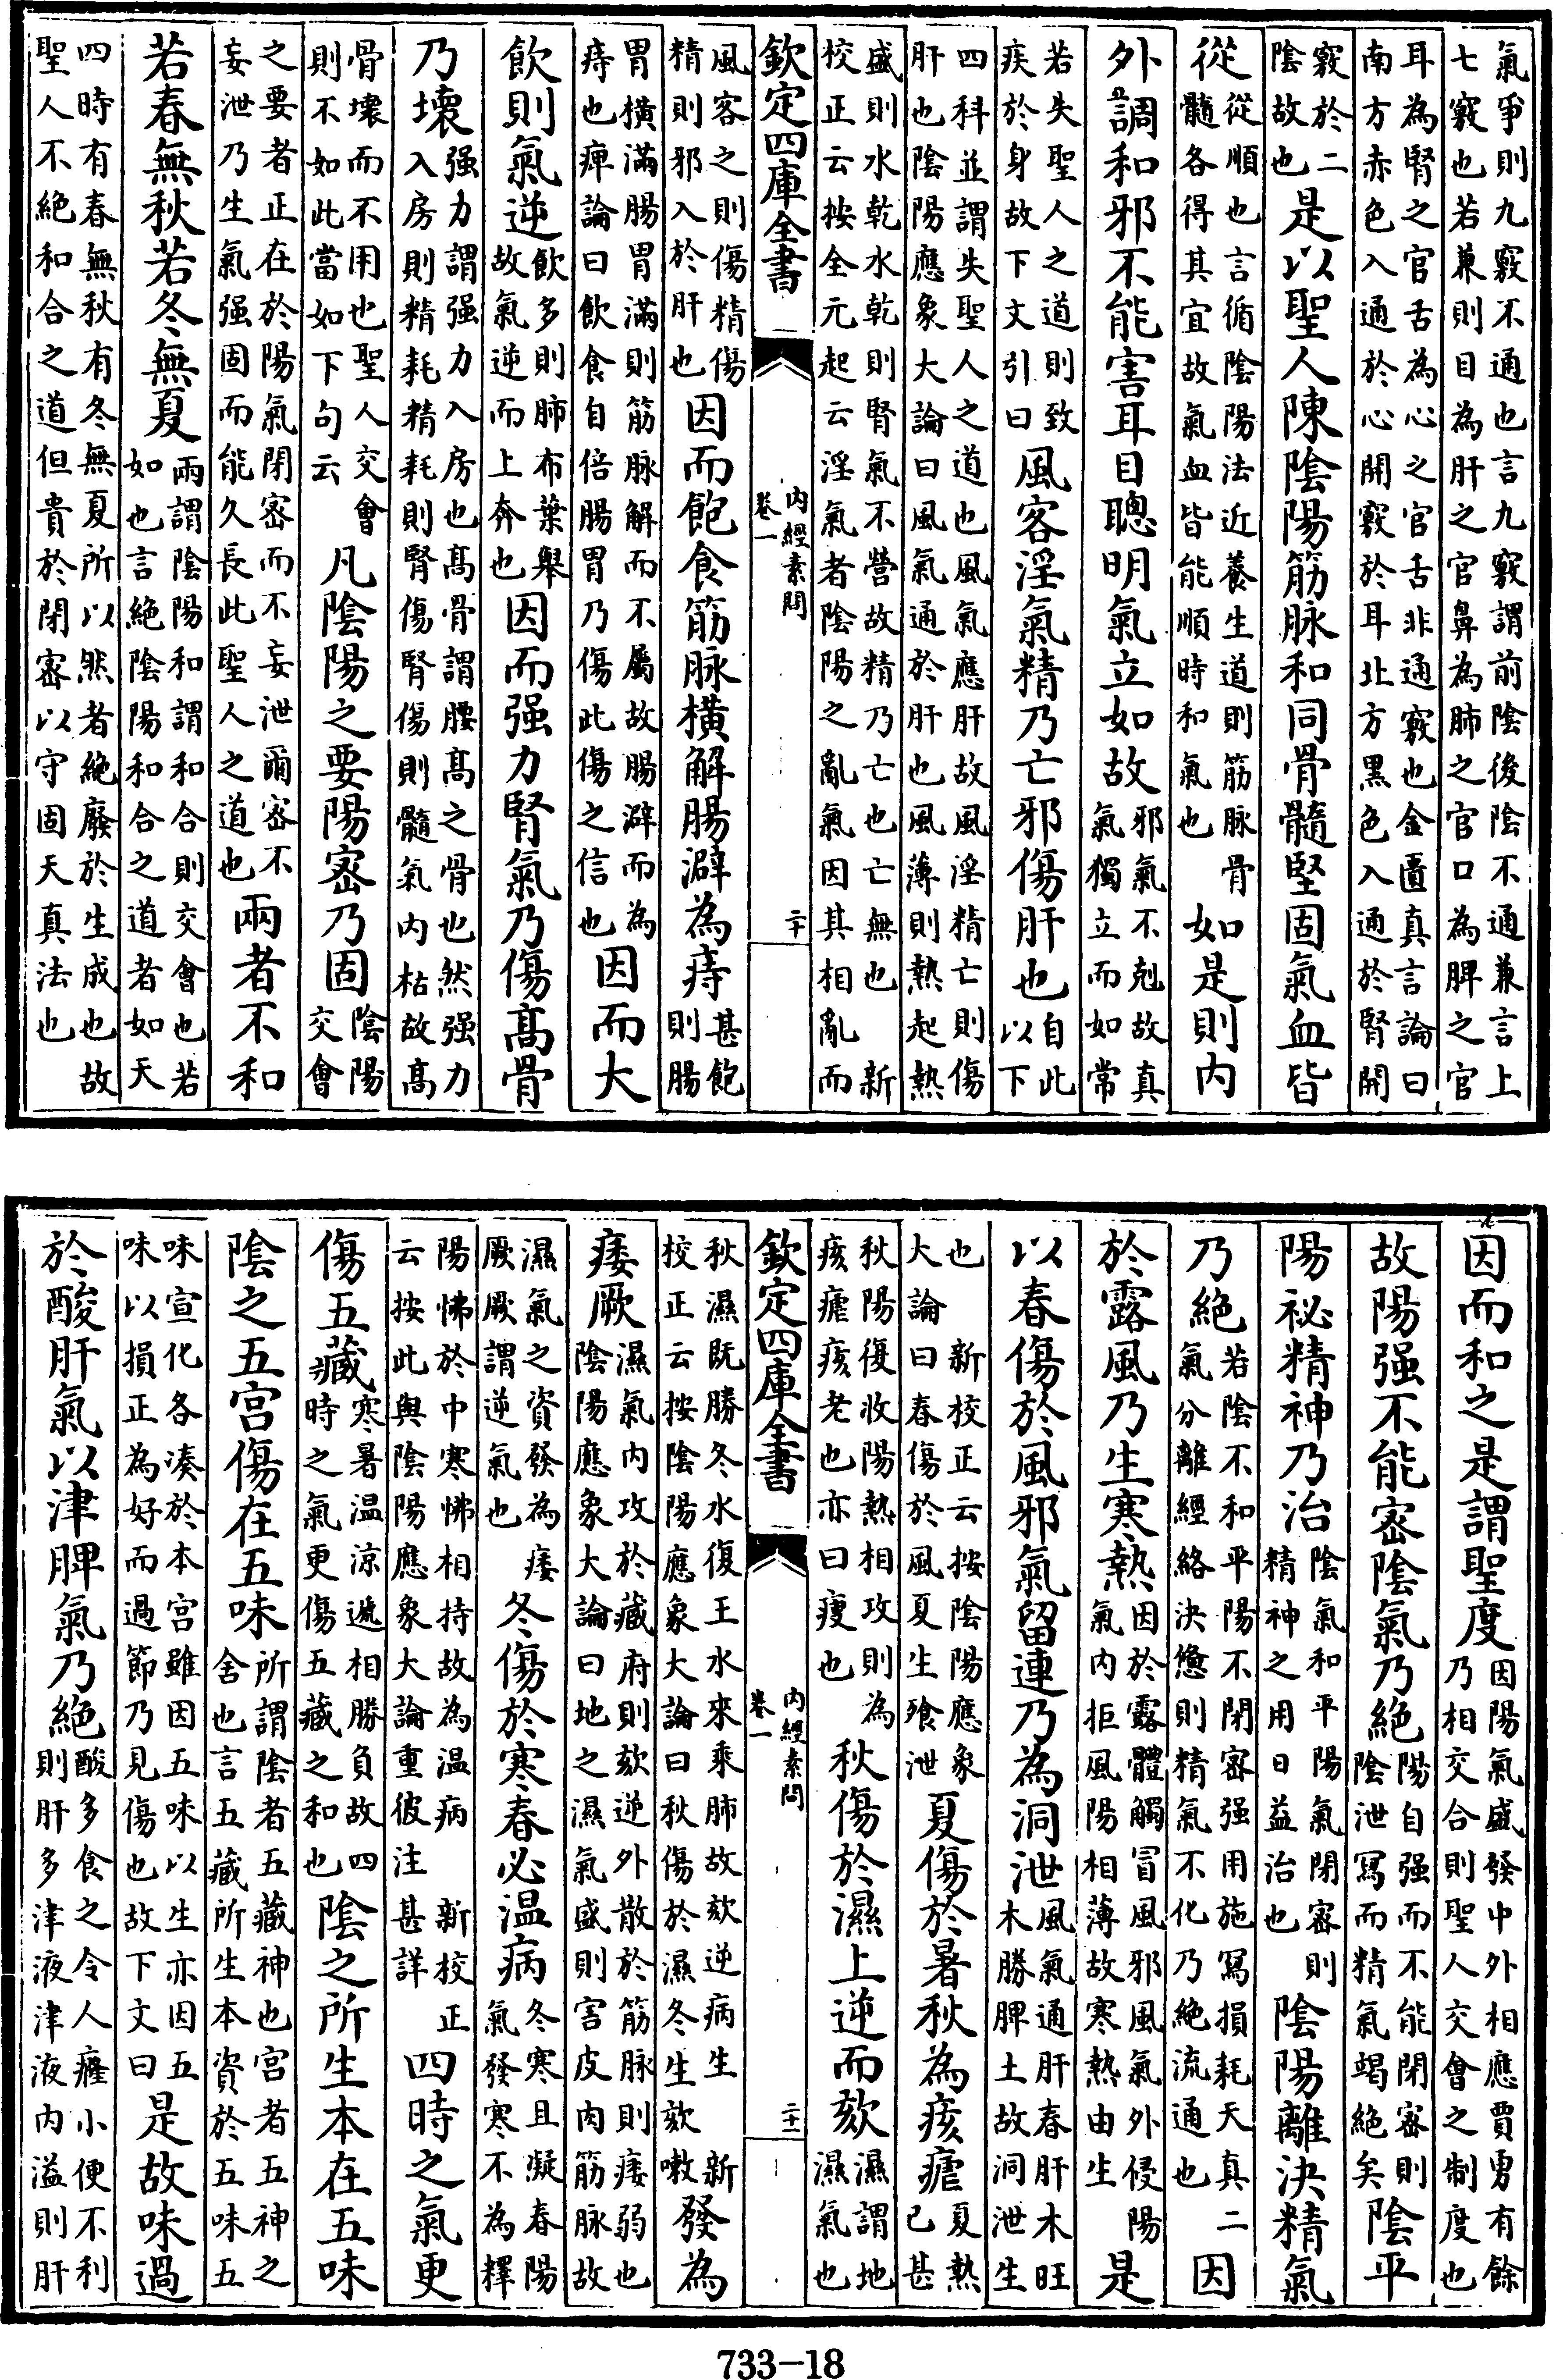 氣爭則九竅不通也言九竅謂前陰後陰不通兼言上
七竅也若兼則目為肝之官鼻為肺之官口為脾之官
耳為腎之官舌為心之官舌非通竅也金匱真言論曰
南方赤色入通於心開竅於耳北方黑色入通於腎開
竅於二陰故也是以聖人陳陰陽筋脉和同骨髓堅固氣血皆
從從順也言循陰陽法近養生道則筋脉骨髓各得其宜故氣血皆能順時和氣也如是則内
外調和邪不能害耳目聰明氣立如故邪氣不剋故真氣獨立而如常
若失聖人之道則致疾於身故下文引曰風客淫氣精乃亡邪傷肝也自此以下
四科並謂失聖人之道也風氣應肝故風淫精亡則傷
肝也陰陽應象大論曰風氣通於肝也風薄則熱起熱
盛則水乾水乾則腎氣不營故精乃亡也亡無也 新
校正云按全元起云淫氣者陰陽之亂氣因其相亂而
欽定四庫全書 内經素問 卷一 二十
風客之則傷精傷精則邪入於肝也因而飽食筋脉横解腸澼為痔甚飽則腸
胃横滿腸胃滿則筋脉解而不屬故腸澼而為痔也痺論曰飲食自倍腸胃乃傷此傷之信也因而大
飲則氣逆飲多則肺布葉舉故氣逆而上奔也因而强力腎氣乃傷髙骨
乃壞强力謂强力入房也髙骨謂腰髙之骨也然强力入房則精耗精耗則腎傷腎傷則髓氣内枯故髙
骨壞而不用也聖人交會則不如此當如下句云凡陰陽之要陽宻乃固陰陽交會
之要者正在於陽氣閉宻而不妄泄爾宻不妄泄乃生氣强固而能久長此聖人之道也兩者不和
若春無秋若冬無夏兩謂陰陽和謂和合則交會也若如也言絶陰陽和合之道者如天
四時有春無秋有冬無夏所以然者絶廢於生成也故
聖人不絶和合之道但貴於閉宻以守固天真法也
因而和之是謂聖度因陽氣盛發中外相應賈勇有餘乃相交合則聖人交會之制度也
故陽强不能宻陰氣乃絶陽自强而不能閉宻則陰泄寫而精氣竭絶矣陰平
陽祕精神乃治陰氣和平陽氣閉宻則精神之用日益治也陰陽離決精氣
乃絶若陰不和平陽不閉宻强用施寫損耗天真二氣分離經絡決憊則精氣不化乃絶流通也因
於露風乃生寒熱因於露體觸冒風邪風氣外侵陽氣内拒風陽相薄故寒熱由生是
以春傷於風邪氣留連乃為洞泄風氣通肝春肝木旺木勝脾土故洞泄生
也 新校正云按陰陽應象大論曰春傷於風夏生飱泄夏傷於暑秋為痎瘧夏熱已甚
秋陽復收陽熱相攻則為痎瘧痎老也亦曰瘦也秋傷於濕上逆而欬濕謂地濕氣也
欽定四庫全書 内經素問 卷一 二十一
秋濕既勝冬水復王水來乘肺故欬逆病生 新校正云按陰陽應象大論曰秋傷於濕冬生欬嗽發為
痿厥濕氣内攻於藏府則欬逆外散於筋脉則痿弱也陰陽應象大論曰地之濕氣盛則害皮肉筋脉故
濕氣之資發為痿厥厥謂逆氣也冬傷於寒春必温病冬寒且凝春陽氣發寒不為釋
陽怫於中寒怫相持故為温病 新校正云按此與陰陽應象大論重彼注甚詳四時之氣更
傷五藏寒暑温凉遞相勝負故四時之氣更傷五藏之和也陰之所生本在五味
陰之五宫傷在五味所謂陰者五藏神也宫者五神之舍也言五藏所生本資於五味五
味宣化各湊於本宫雖因五味以生亦因五味以損正為好而過節乃見傷也故下文曰是故味過
於酸肝氣以津脾氣乃絶酸多食之令人癃小便不利則肝多津液津液内溢則肝
733-18